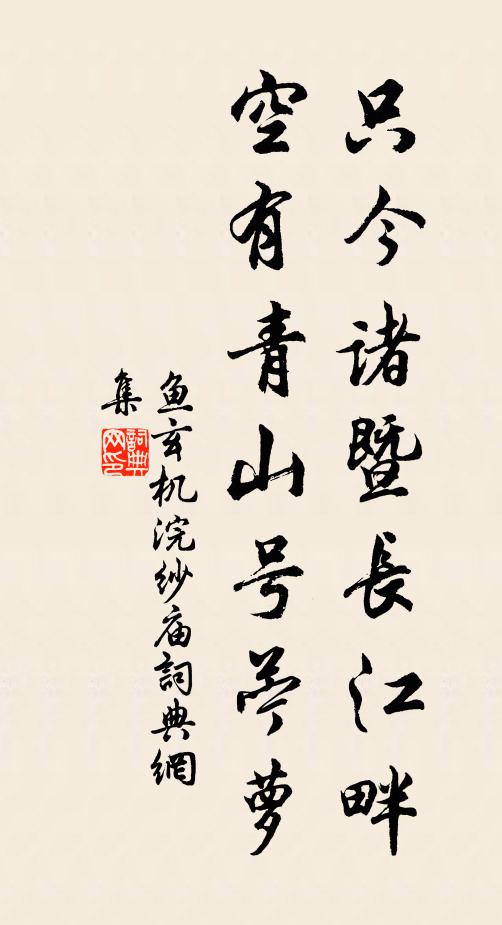 只今诸暨長江畔
空有青山号苧萝
鱼玄机浣纱庙詞典網
集
詞典网印